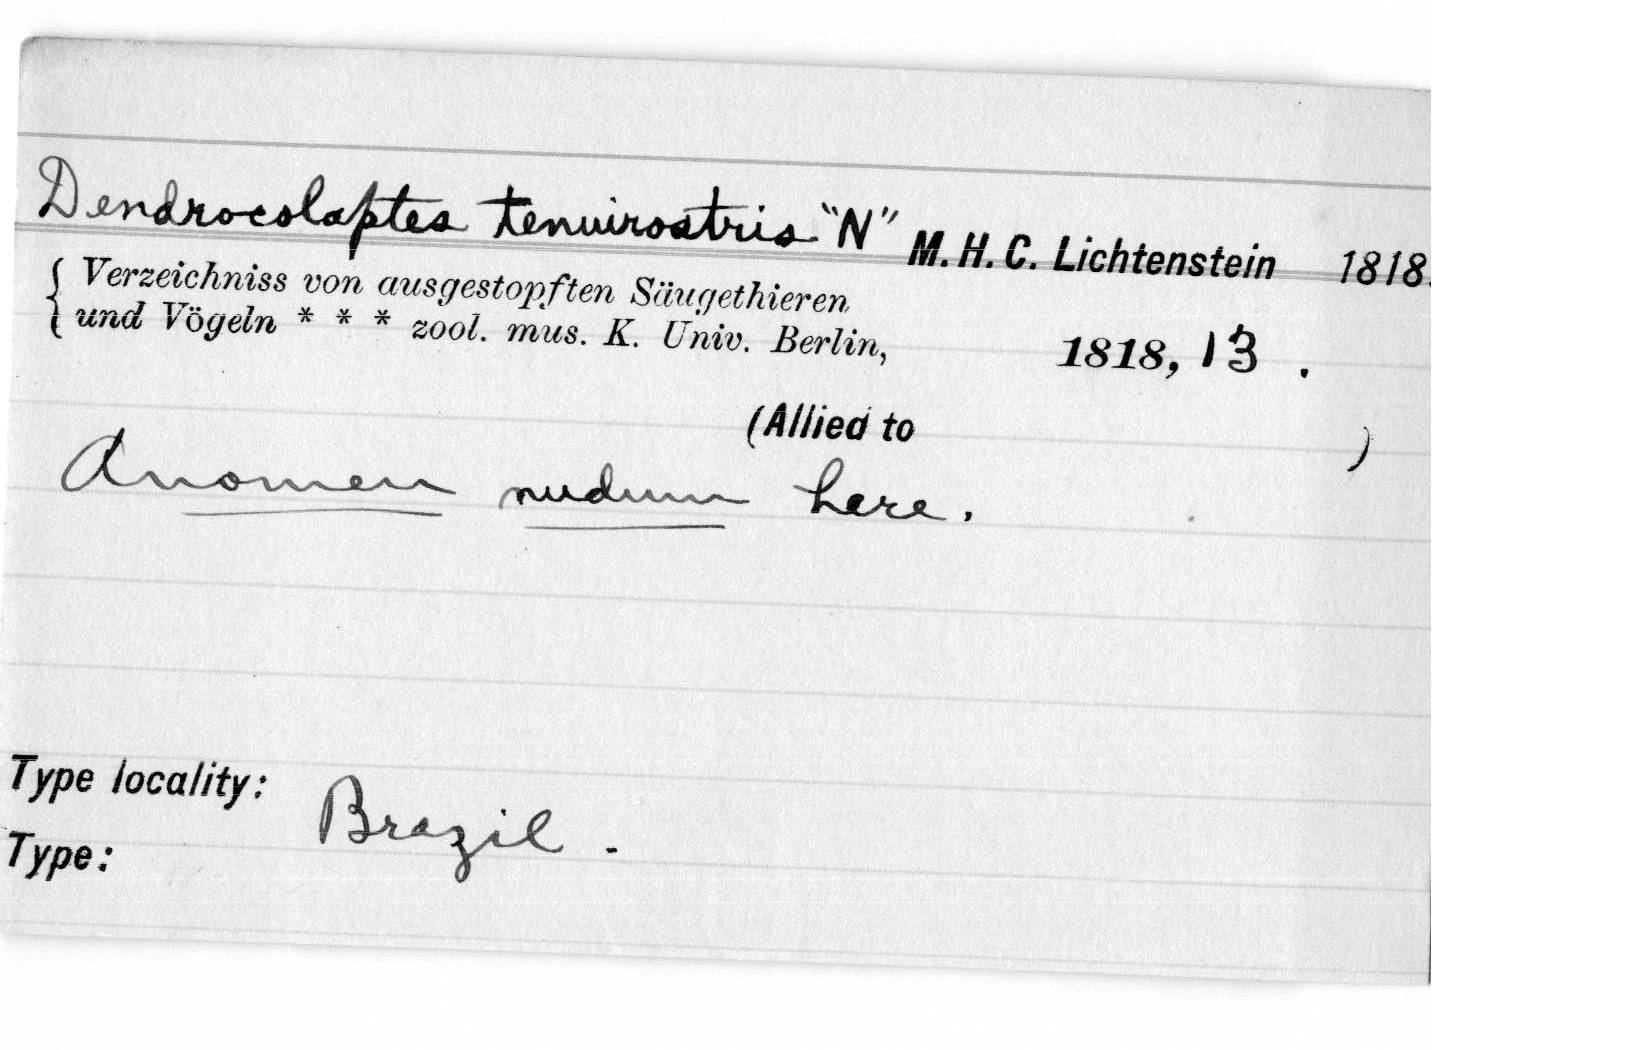 Dendrocolaptes tenuirostris "N" M. H. C. Lichtenstein 1818.
{ Verzeichniss von ausgestopften Säugethieren
und Vögeln * * * zool. mus. K. Univ. Berlin, 1818, 13 .
(Allied to )
A nomen nudum here.
Type locality: Brazil.
Type: